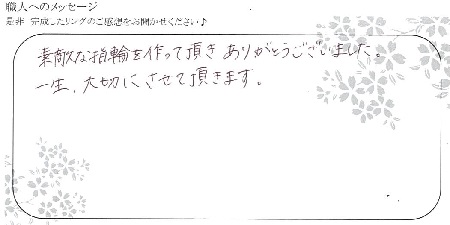 職人へのメッセージ
是非 完成したリングのご感想をお聞かせください♪
素敵な指輪を作って頂き ありがとうございました。
一生、大切にさせて頂きます。